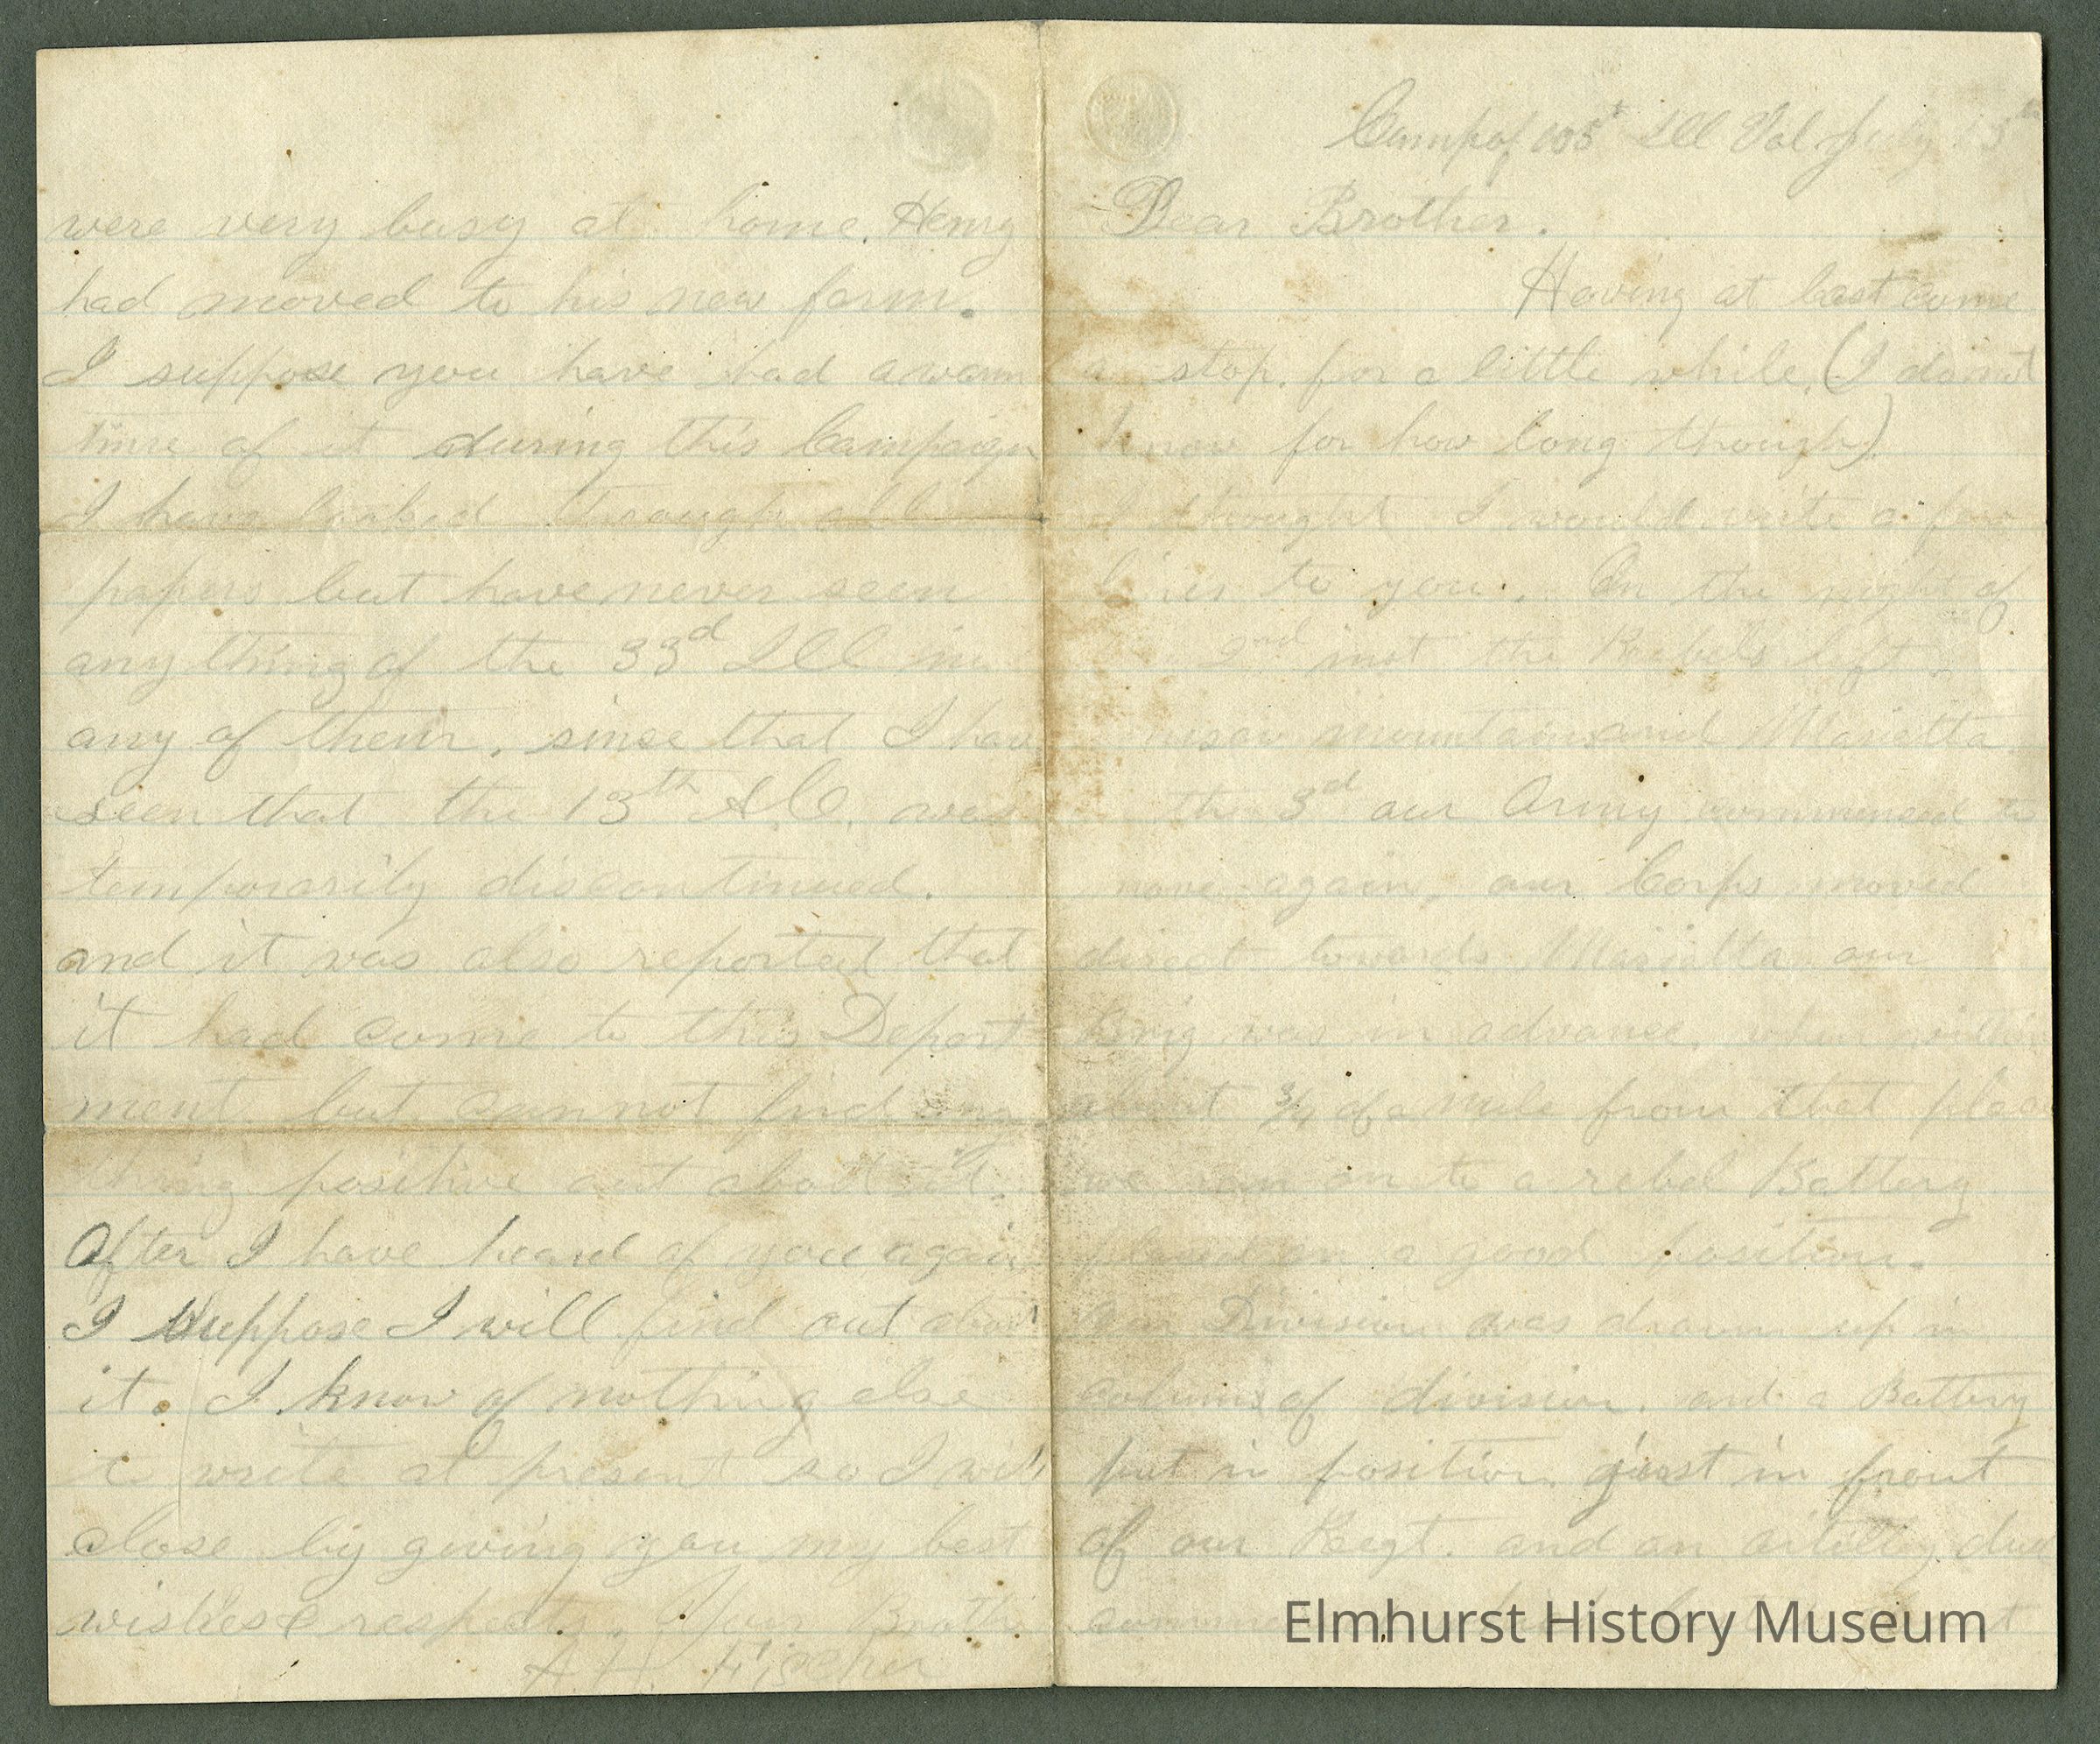 Camp of 105th Ill Vol July 13th
Dear Brother.
Having at last come
a stop. for a little while, (I do not
know for how long though)
I thought I would write a few
lines to you. On the night of
2nd inst the Rebels left
nesaw mountain and Marietta
the 3rd our Army commenced to
move again, our Corps moved
direct towards Marietta our
Brig was in advance, when within
about 3/4 of a mile from that place
we ran on to a rebel Battery
placed on a good position.
Our Division was drawn up in
column of division. and a Battery
put in position just in front
of our Regt. and an artillery duel
were very busy at home. Henry
had moved to his new farm.
I suppose you have had a warm
time of it during this Campaign
I have looked through all
papers but have never seen
any thing of the 33d Ill in
any of them, since that I have
seen that the 13th A.C. was
temporarily discontinued.
and it was also reported that
it had come to this Depart
ment but can not find any
thing positive out about it.
After I have heard of you again
I suppose I will find out about
it. I know of nothing else
to write at present so I will
close by giving you my best
wishes & respects. Your Brother
A.H. Fischer
Elmhurst History Museum